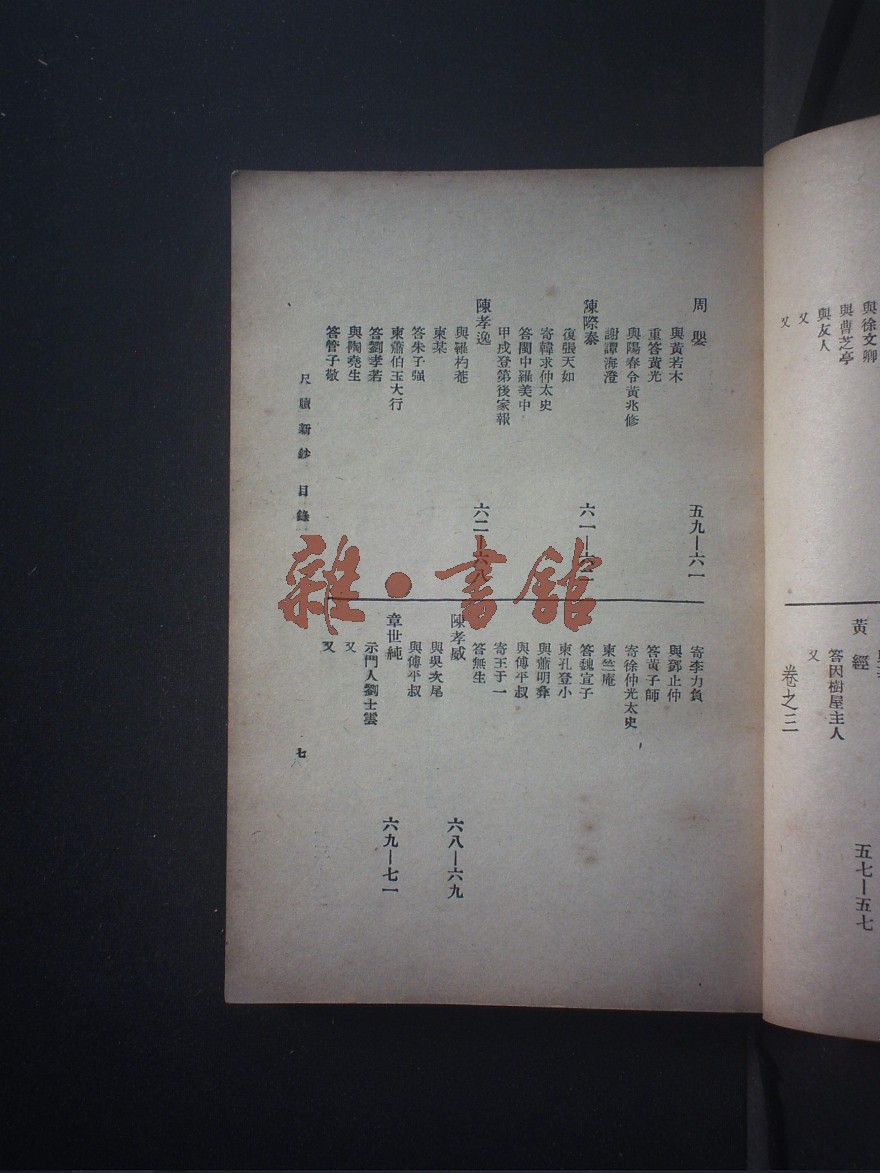 與徐文卿
與曹芝亭
與友人
又
又
黃經
答因樹屋主人
又
五七—五七
卷之三
周嬰
五九—六一
與黃若木
重答黃光
與陽春令黃兆修
謝譚海澄
陳際泰
復張天如
寄韓求仲太史
答閩中羅美中
甲戌登第後家報
陳孝逸
六二—六八
與羅杓菴
柬某
答朱子强
柬蕭伯玉大行
答劉孝若
與陶堯生
答管子敬
寄李力負
與鄧止仲
答黃子師
寄徐仲光太史
柬竺庵
答魏宣子
柬孔登小
與蕭明彝
與傅平叔
寄王于一
答無生
陳孝威
六八—六九
與吳次尾
與傅平叔
章世純
六九—七一
示門人劉士雲
又
又
尺牘新鈔 目錄
七
雜·書館